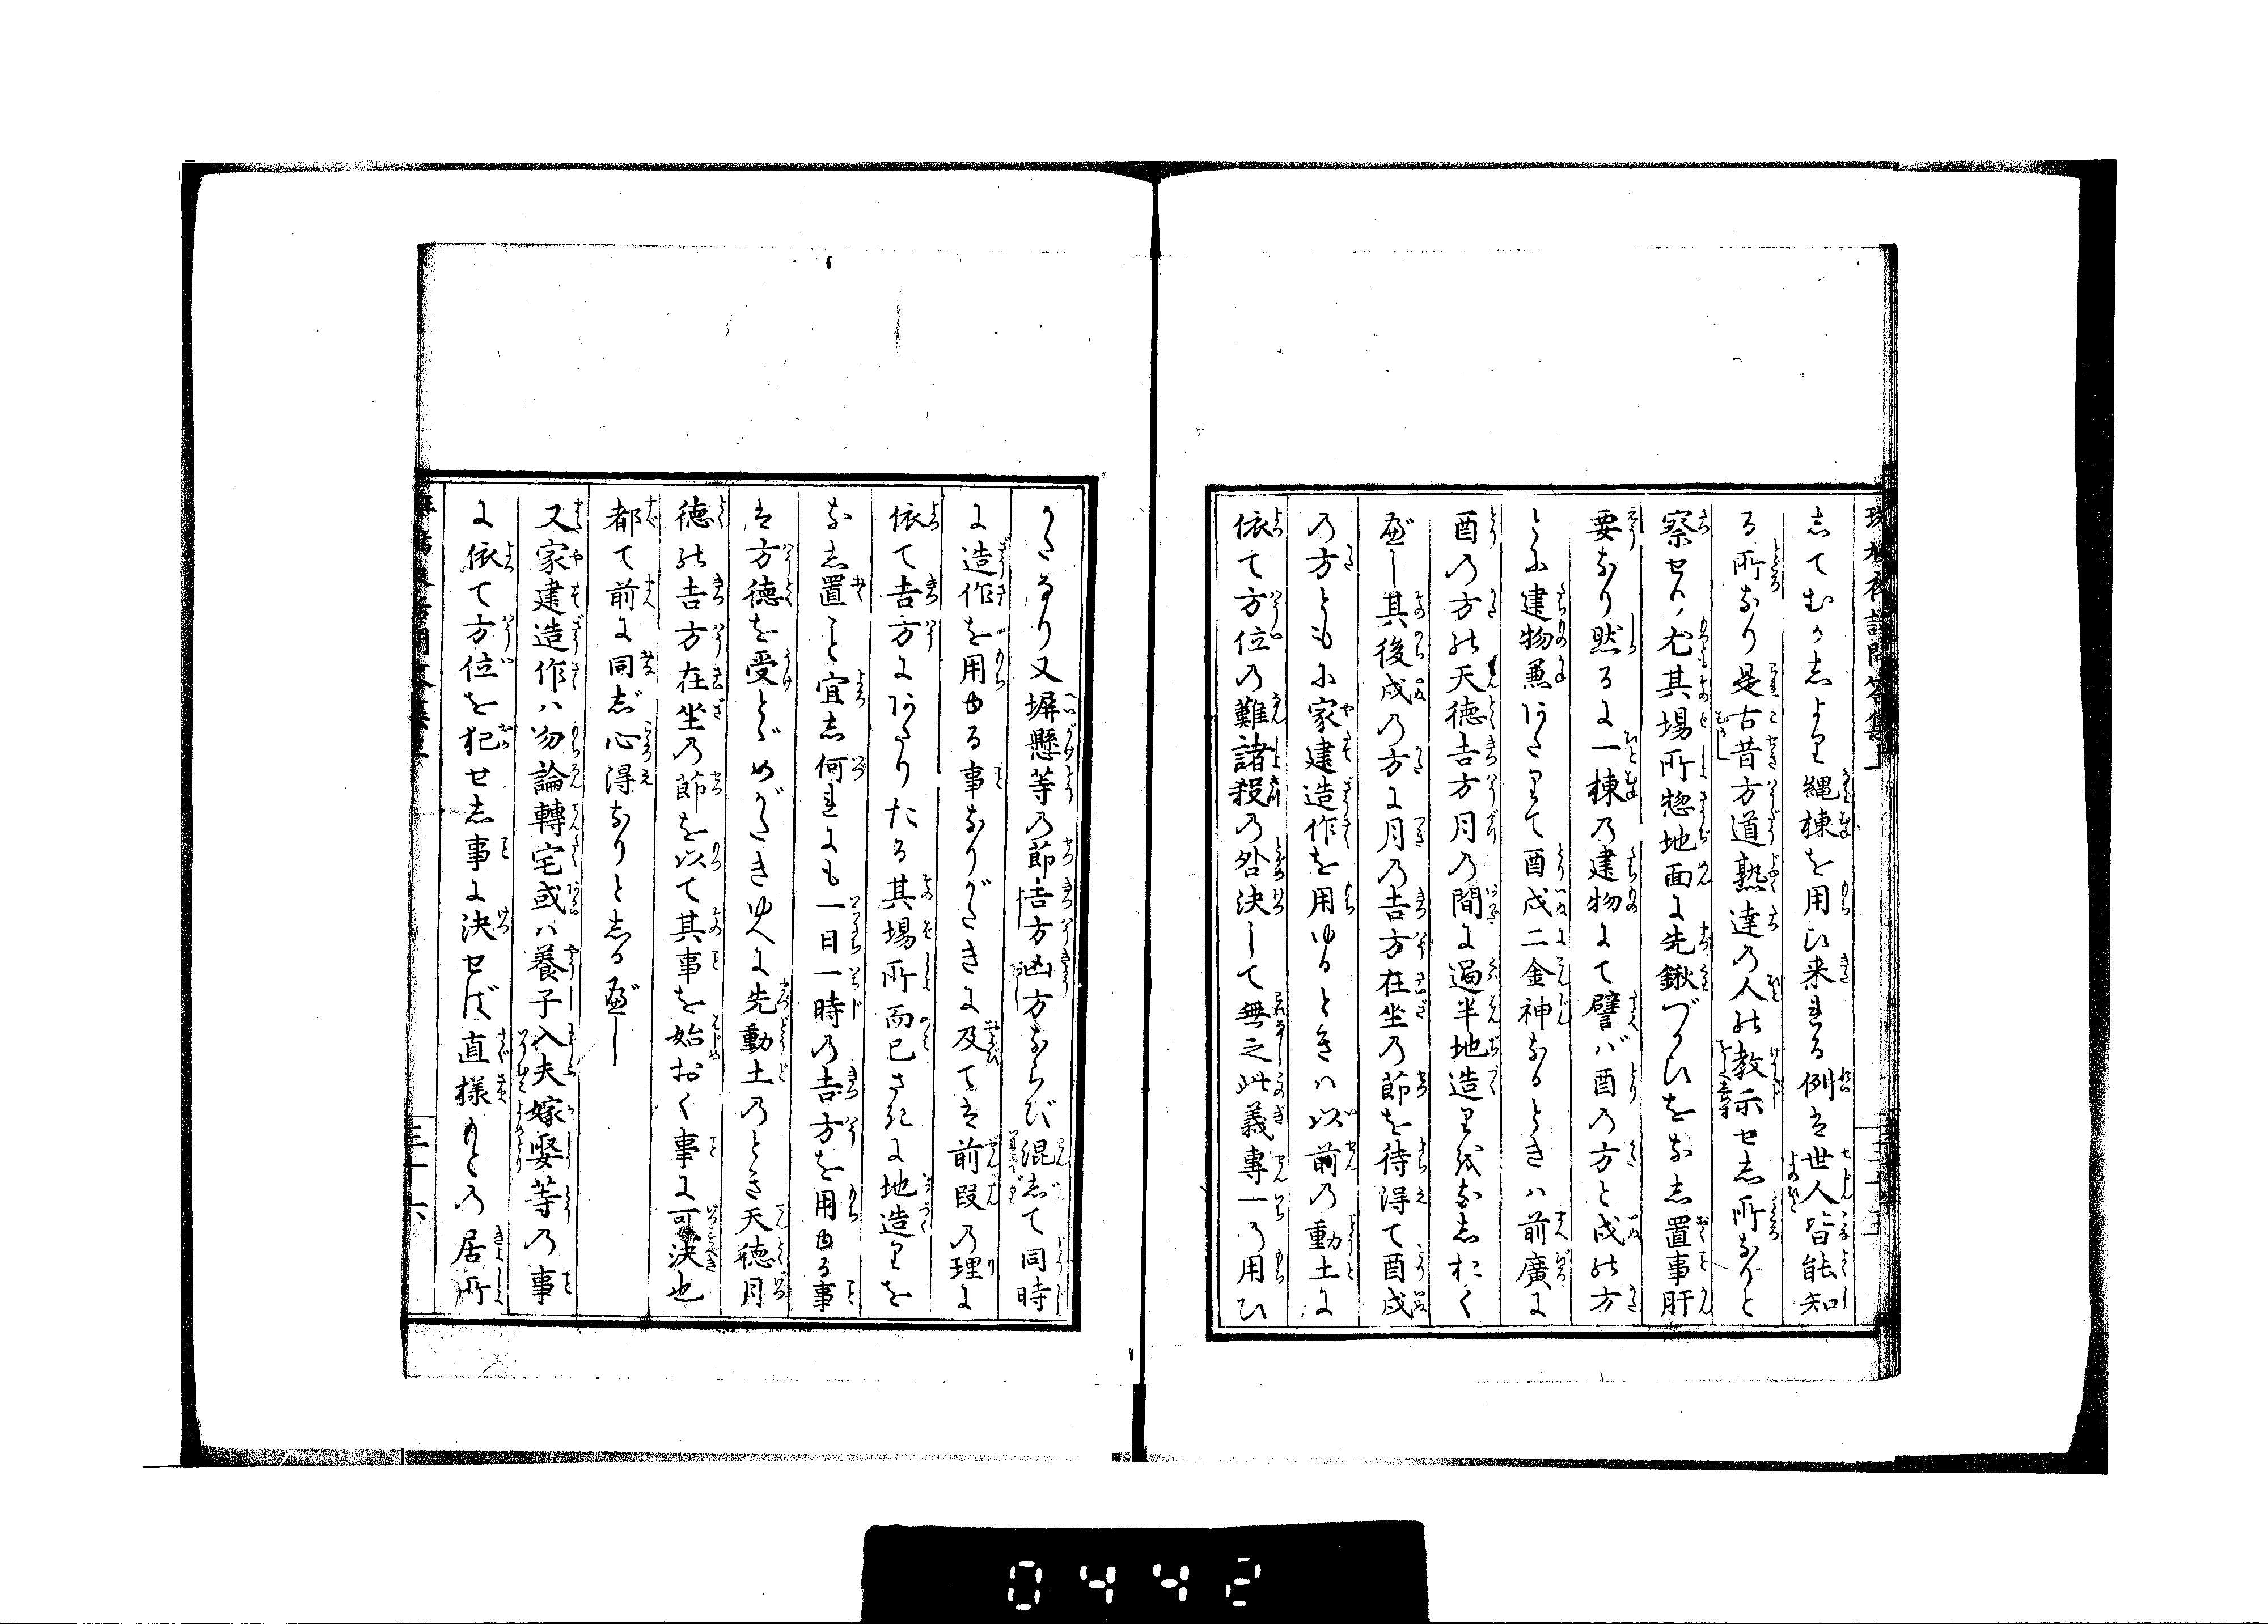 してむかしより縄棟を用ひ来れる例は世人皆能知
る所なり是古昔方道熟達の人の教示せし所なりと
察せり尤其場所惣地面に先鍬づかひをなし置事肝
要なり然るに一棟の建物にて譬バ酉の方と戌の方
とに建物兼あたりて酉戌二金神なるときハ前廣に
酉の方の天徳吉方月の間に過半地造り抔なしおく
べし其後戌の方に月の吉方在坐の節を待得て酉戌
の方ともに家建造作を用ゆるときハ以前の動土に
依て方位の難諸殺の咎決して無之此義専一の用ひ
かたなり又塀懸等の節吉方凶方ならび混じて同時
に造作を用ゆる事なりがたきに及ては前段の理に
依て吉方にあたりたる其場所而已さきに地造りを
なし置こと宜し何れにも一日一時の吉方を用ゆる事
は方徳を受とゞめがたきゆへに先動土のとき天徳月
徳の吉方在坐の節を以て其事を始おく事に可決也
都て前に同じ心得なりとしるべし
又家建造作ハ勿論轉宅或ハ養子入夫嫁娶等の事
に依て方位を犯せし事に決せば直様もとの居所
三十六
0442